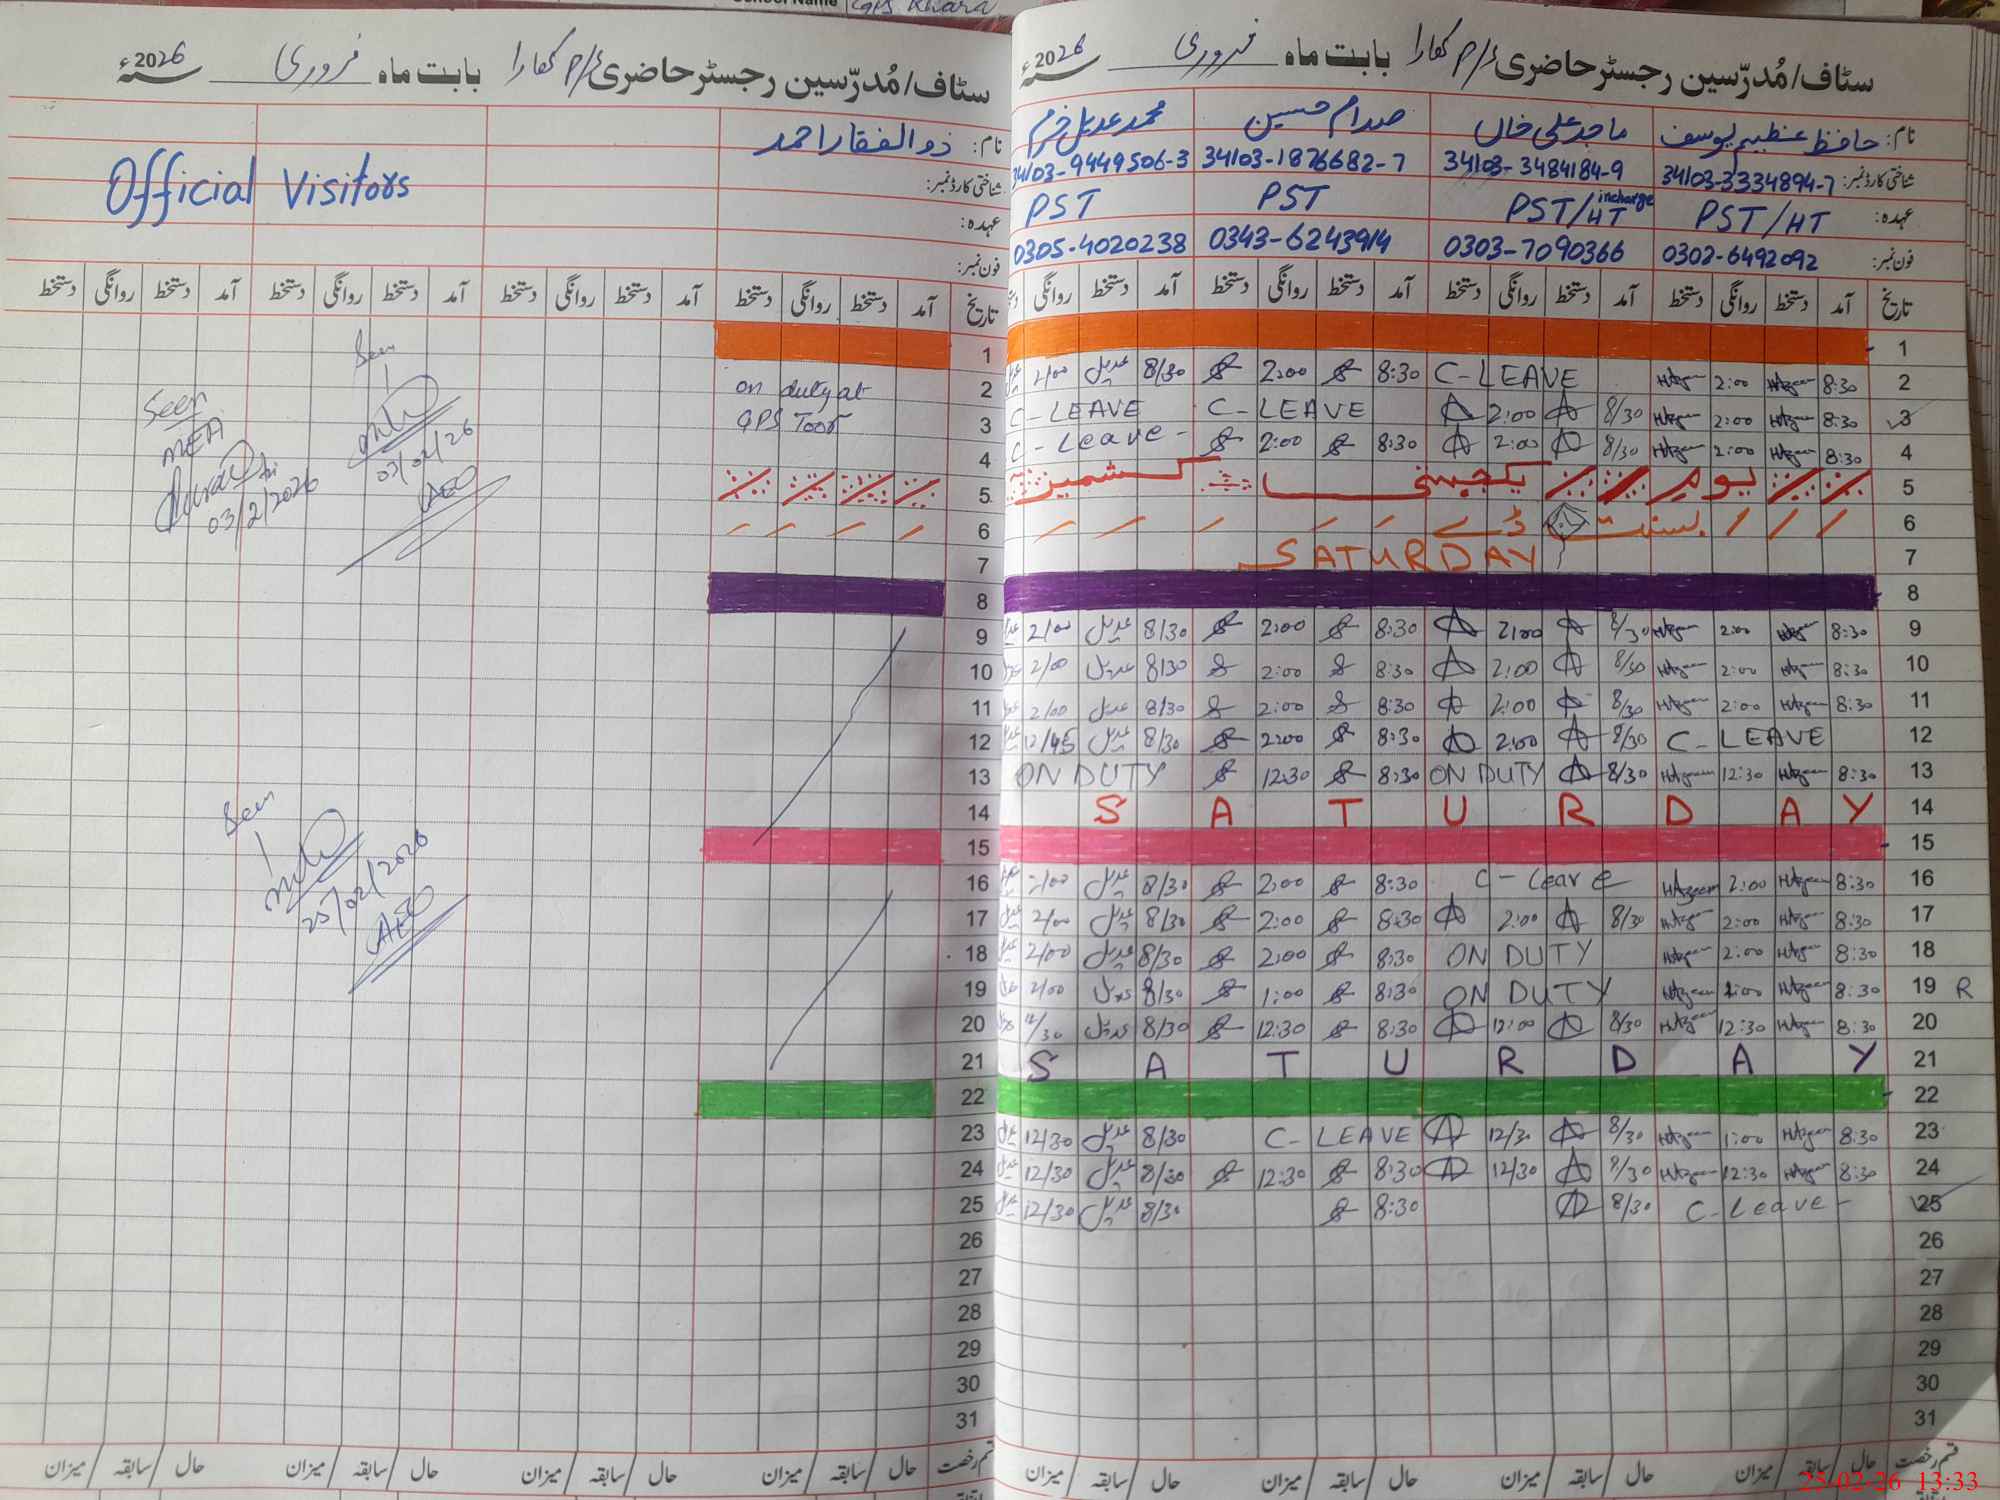 School Name GPS Khara
سٹاف/مُدرّسین رجسٹر حاضری گ/پ کھارا بابت ماہ فروری 2026ء
نام: ذوالفقار احمد
شناختی کارڈ نمبر:
عہدہ:
فون نمبر:
Official Visitors
تاریخ آمد دستخط روانگی دستخط آمد دستخط روانگی دستخط آمد دستخط روانگی دستخط آمد دستخط روانگی دستخط
1
2 on duty at
3 GPS Toor
4
5
6
7
8
9
10
11
12
13
14
15
16
17
18
19
20
21
22
23
24
25
26
27
28
29
30
31
Seen
MEA
03/2/2026
Seen
03/02/26
AEO
Seen
25/02/2026
AEO
قسم رخصت حال سابقہ میزان حال سابقہ میزان حال سابقہ میزان حال سابقہ میزان
سٹاف/مُدرّسین رجسٹر حاضری گ/پ کھارا بابت ماہ فروری 2026ء
نام: حافظ عظیم یوسف ماجد علی خاں صدام حسین محمد عدیل خرم
شناختی کارڈ نمبر: 34103-3334894-7 34103-3484184-9 34103-1876682-7 34103-9449506-3
عہدہ: PST/HT PST/HT incharge PST PST
فون نمبر: 0302-6492092 0303-7090366 0343-6243914 0305-4020238
تاریخ آمد دستخط روانگی دستخط آمد دستخط روانگی دستخط آمد دستخط روانگی دستخط آمد دستخط روانگی
1
2 8:30 2:00 C-LEAVE 8:30 2:00 8/30 عدیل 2/00
3 8:30 2:00 8/30 2:00 C-LEAVE C-LEAVE
4 8:30 2:00 8/30 2:00 8:30 2:00 C-Leave-
5 یوم یکجہتی کشمیر
6 بسنت ڈے
7 SATURDAY
8
9 8:30 2:00 8/30 2:00 8:30 2:00 8/30 عدیل 2/00
10 8:30 2:00 8/30 2:00 8:30 2:00 8/30 عدیل 2/00
11 8:30 2:00 8/30 2:00 8:30 2:00 8/30 عدیل 2/00
12 C-LEAVE 8/30 2:00 8:30 2:00 8/30 عدیل 12/45
13 8:30 12:30 8/30 ON DUTY 8:30 12:30 ON DUTY
14 SATURDAY
15
16 8:30 2:00 C-Leave 8:30 2:00 8/30 عدیل 2/00
17 8:30 2:00 8/30 2:00 8:30 2:00 8/30 عدیل 2/00
18 8:30 2:00 ON DUTY 8:30 2:00 8/30 عدیل 2/00
19 R 8:30 1:00 ON DUTY 8:30 1:00 8/30 عدیل 2/00
20 8:30 12:30 8/30 12:00 8:30 12:30 8/30 عدیل 12/30
21 SATURDAY
22
23 8:30 1:00 8/30 12/30 C-LEAVE 8/30 عدیل 12/30
24 8:30 12:30 8/30 12/30 8:30 12:30 8/30 عدیل 12/30
25 C-Leave- 8/30 8:30 8/30 عدیل 12/30
26
27
28
29
30
31
قسم رخصت حال سابقہ میزان حال سابقہ میزان حال سابقہ میزان حال سابقہ میزان
25-02-26 13:33